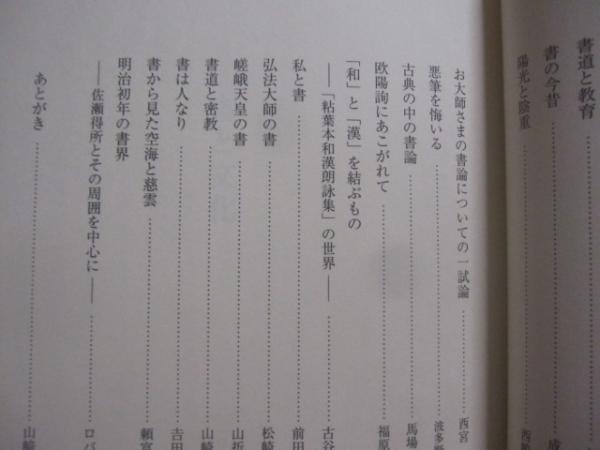 書道と教育
書の今昔
陽光と陰重
お大師さまの書論についての一試論 西宮
悪筆を悔いる 波多野
古典の中の書論 馬場
欧陽詢にあこがれて 福原
「和」と「漢」を結ぶもの
――「粘葉本和漢朗詠集」の世界―― 古谷
私と書 前田
弘法大師の書 松崎
嵯峨天皇の書 山折
書道と密教 山崎
書は人なり 吉田
書から見た空海と慈雲 頼富
明治初年の書界
――佐瀬得所とその周囲を中心に―― ロバ
あとがき 山崎